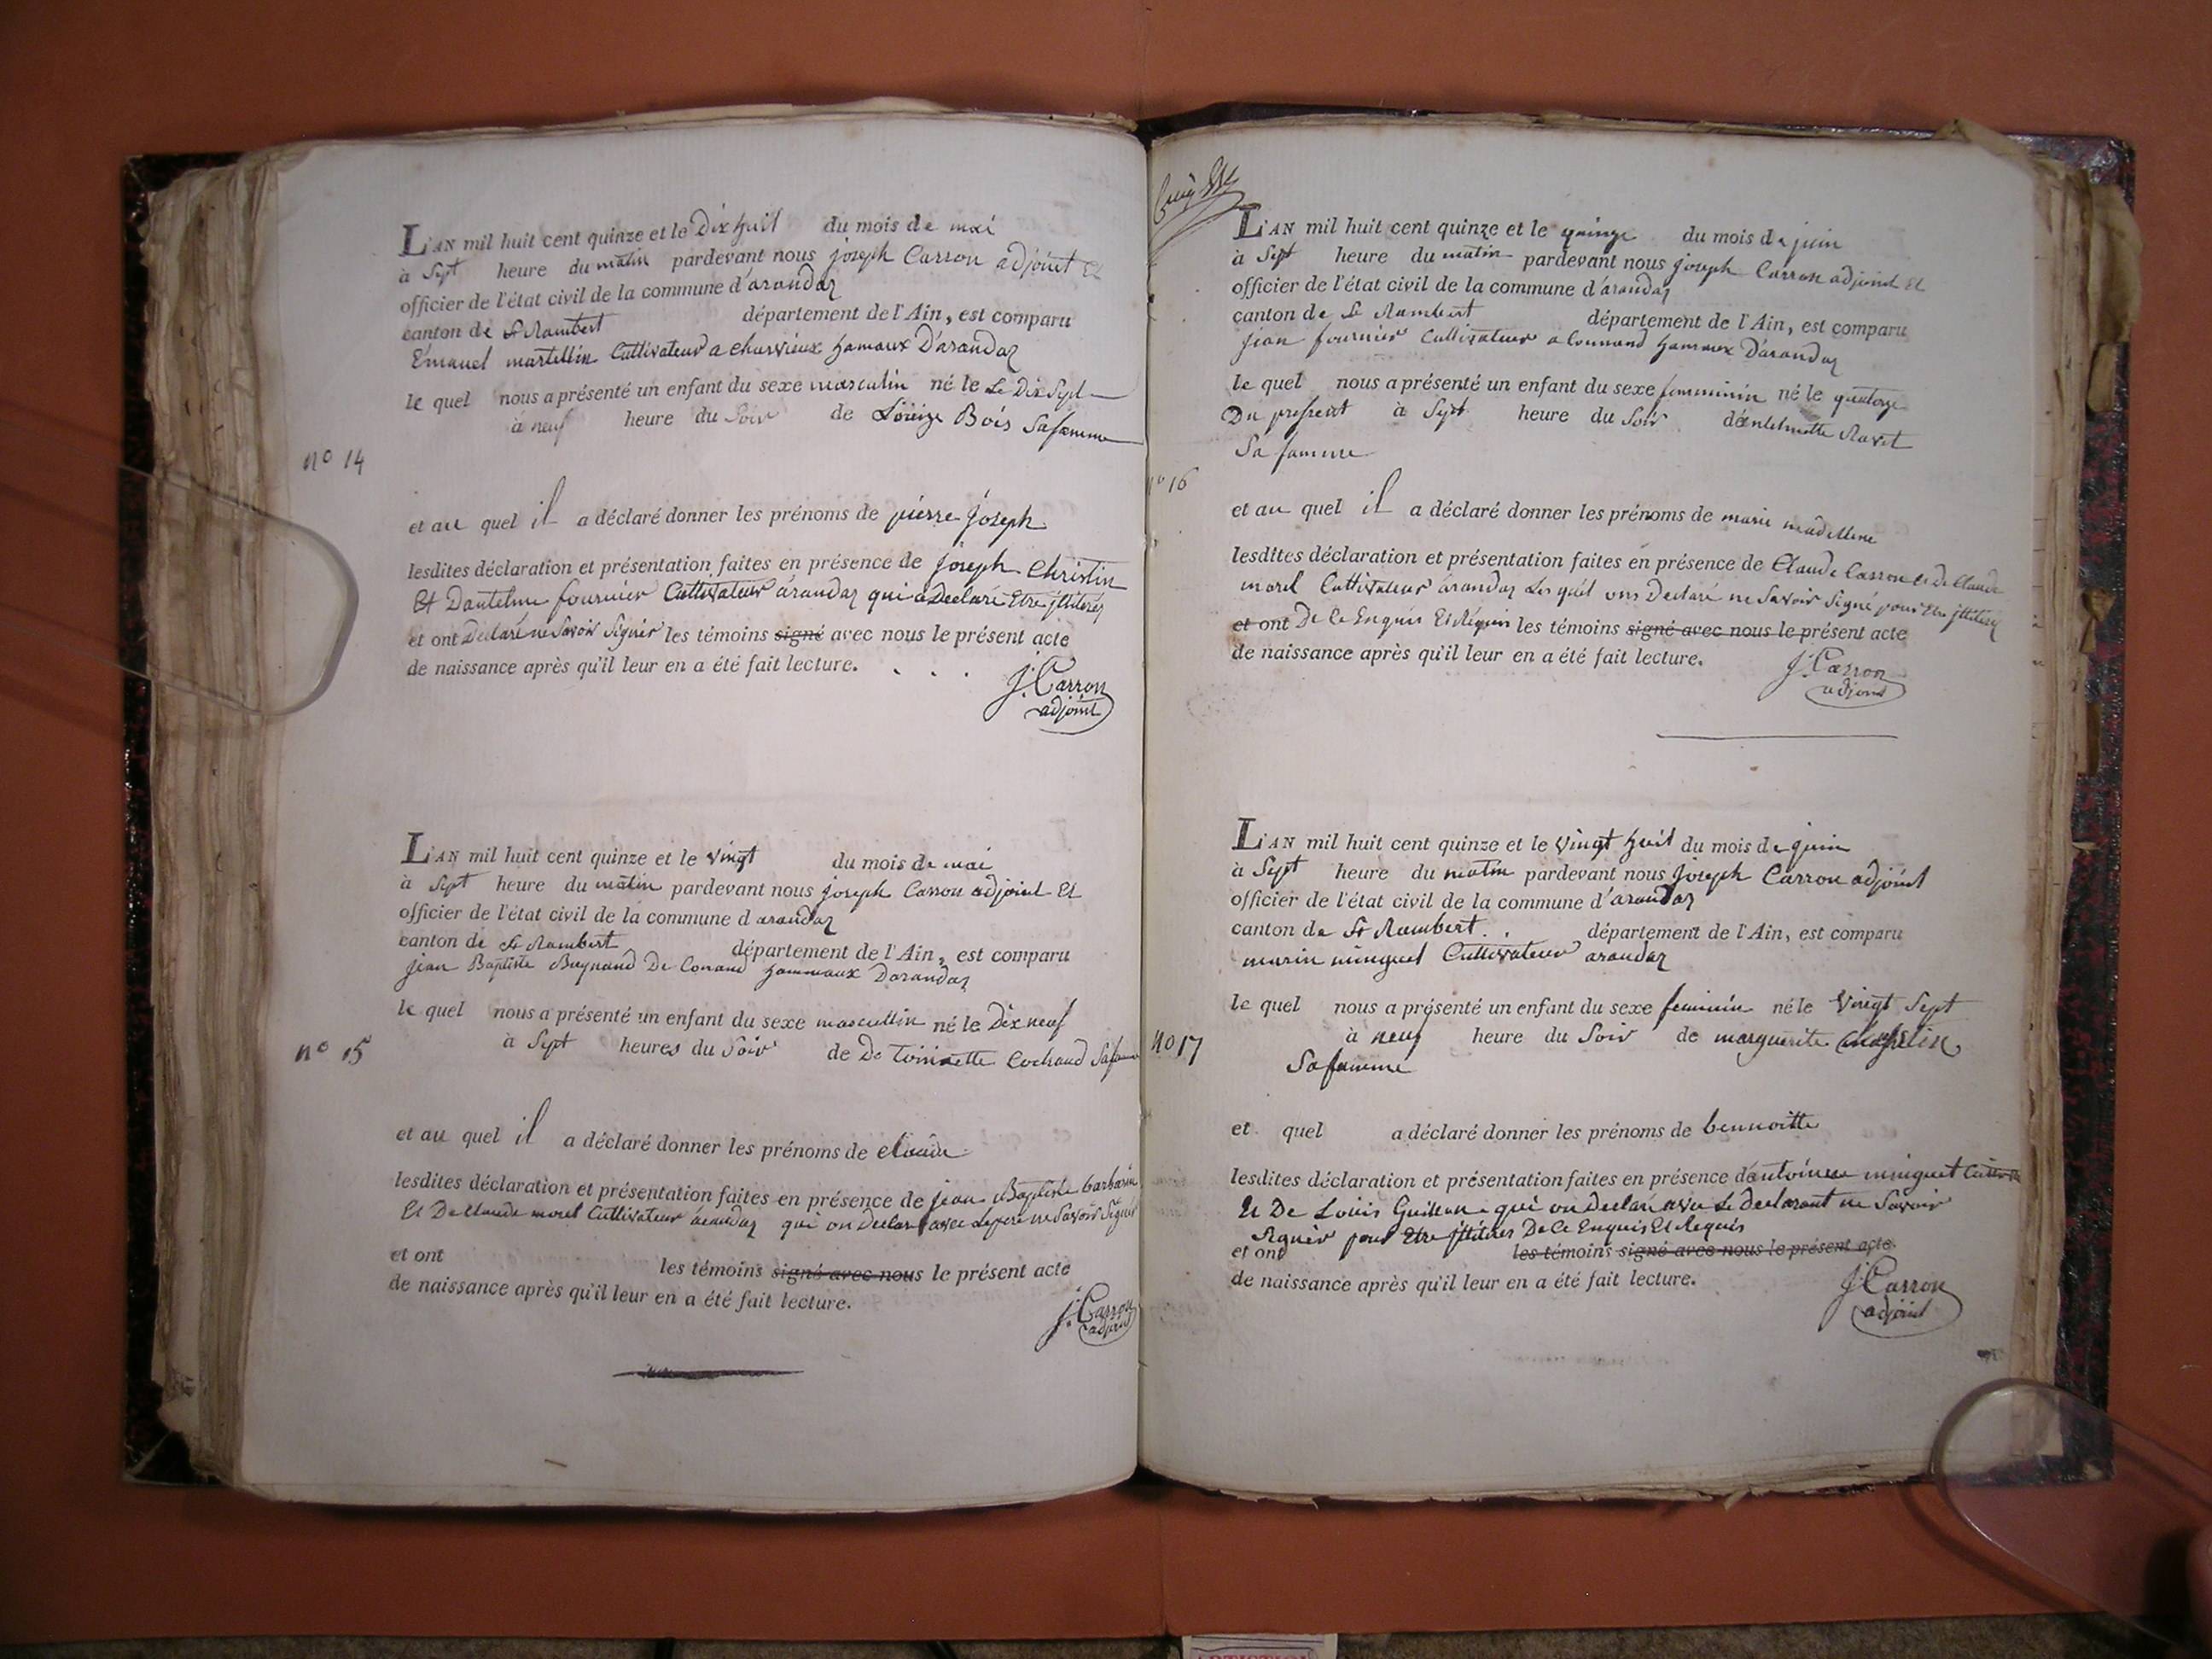 L'AN mil huit cent quinze et le Dix huit du mois de mai
à Sept heure du matin pardevant nous joseph Carron adjoint Et
officier de l'état civil de la commune d'arandaz
canton de St Rambert département de l'Ain, est comparu
Emanuel martellin Cultivateur a charvieux hamaux D'arandaz
le quel nous a présenté un enfant du sexe masculin né le Le Dix Sept
à neuf heure du Soir de Loüize Bois Safamme
n° 14
et au quel il a déclaré donner les prénoms de pierre joseph
lesdites déclaration et présentation faites en présence de joseph Christin
Et Dantelme fournier Cultivateur arandaz qui a Declaré Etre jllitérés
et ont Declaré ne Savoir Signer les témoins signé avec nous le présent acte
de naissance après qu'il leur en a été fait lecture.
J. Carron
adjoint
L'AN mil huit cent quinze et le vingt du mois de mai
à Sept heure du matin pardevant nous joseph Carron adjoint Et
officier de l'état civil de la commune d arandaz
canton de St Rambert département de l'Ain, est comparu
jean Baptiste Buynand De Conand hammaux Darandaz
le quel nous a présenté un enfant du sexe mascullin né le Dix neuf
à Sept heures du Soir de De Toininette Cochaud
n° 15
et au quel il a déclaré donner les prénoms de claude
lesdites déclaration et présentation faites en présence de jean Baptiste barbarin
Et De Claude morel Cultivateur arandaz qui on Declaré avec le pere ne Savoir Signér
et ont les témoins signé avec nous le présent acte
de naissance après qu'il leur en a été fait lecture.
J. Carron
adjoint
L'AN mil huit cent quinze et le quinze du mois de juin
à Sept heure du matin pardevant nous joseph Carron adjoint Et
officier de l'état civil de la commune d'arandaz
canton de St Rambert département de l'Ain, est comparu
jean fournier Cultivateur a Counand hamaux D'arandaz
le quel nous a présenté un enfant du sexe femminin né le quatorze
Du present à Sept heure du Soir d'éantelmette Ravet
Sa famme
n° 16
et au quel il a déclaré donner les prénoms de marie madellene
lesdites déclaration et présentation faites en présence de Claude Carron et De Claude
morel Cultivateur arandaz Les quel ons Declaré ne Savoir Signé pour Etre jlliterez
et ont De Ce Enquis Et Réquis les témoins signé avec nous le présent acte
de naissance après qu'il leur en a été fait lecture.
J. Carron
adjoint
L'AN mil huit cent quinze et le vingt huit du mois de juin
à Sept heure du matin pardevant nous Joseph Carron adjoint
officier de l'état civil de la commune d'arandaz
canton de St Rambert. département de l'Ain, est comparu
marin minguet Cultivateur arandaz
le quel nous a présenté un enfant du sexe feminin né le vingt Sept
à neuf heure du Soir de marguerite
no 17
Safamme
et quel a déclaré donner les prénoms de bennoitte
lesdites déclaration et présentation faites en présence d'antoinne minguet
Et De Louis Guillon qui on Declaré avec Le declarant ne Savoir
Signér pour Etre jlliteres De Ce Enquis Et Requis
et ont les témoins signé avec nous le présent acte
de naissance après qu'il leur en a été fait lecture.
J. Carron
adjoint